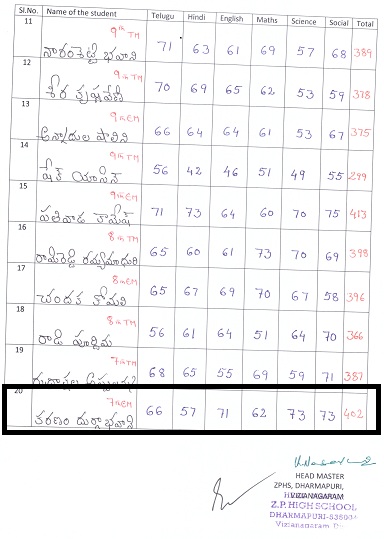 Sl.No. Name of the student Telugu Hindi English Maths Science Social Total
11 9th TM
నారంశెట్టి భవాని 71 63 61 69 57 68 389
12 9th TM
70 69 65 62 53 59 378
13 9th EM
66 64 64 61 53 67 375
14 9th TM
షేక్ యాసిన్ 56 42 46 51 49 55 299
15 9th EM
71 73 64 60 70 75 413
16 8th TM
65 60 61 73 70 69 398
17 8th EM
చందక కోమలి 65 67 69 70 67 58 396
18 8th TM
రాడి పూర్ణిమ 56 61 64 51 64 70 366
19 7th TM
68 65 55 69 59 71 387
20 7th EM
కరణం దుర్గా భవాని 66 57 71 62 73 73 402
HEAD MASTER
ZPHS, DHARMAPURI,
VIZIANAGARAM
Z.P. HIGH SCHOOL